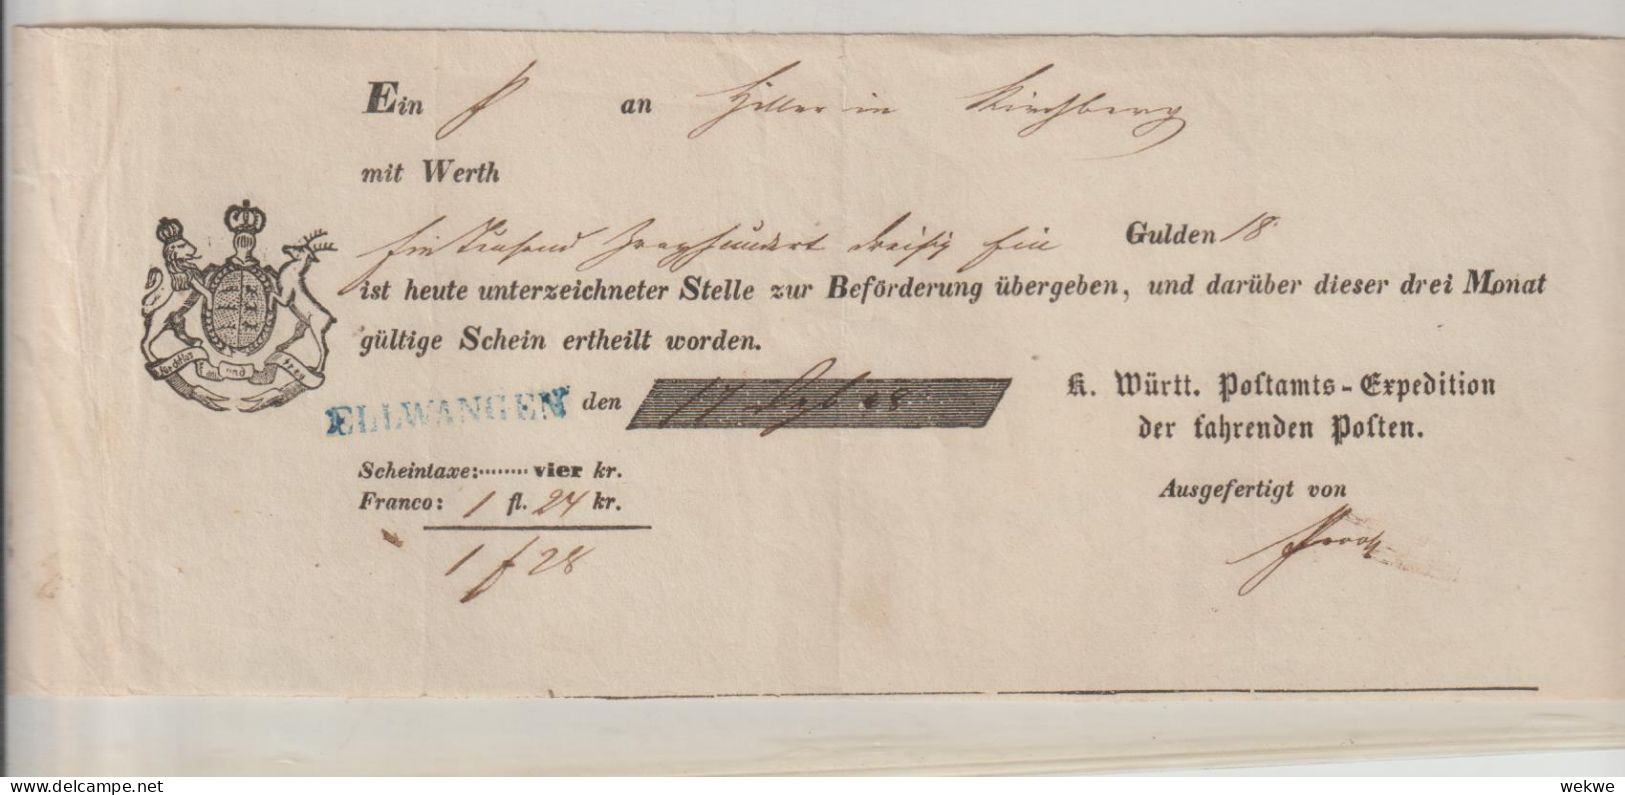 Ein P an Hiller in Kirchberg
mit Werth
Ein Tausend Zweyhundert dreißig Ein Gulden 18
ist heute unterzeichneter Stelle zur Beförderung übergeben, und darüber dieser drei Monat
gültige Schein ertheilt worden.
furchtlos und trew
ELLWANGEN den 17 48
K. Württ. Postamts-Expedition
der fahrenden Posten.
Scheintaxe:........ vier kr.
Franco: 1 fl. 24 kr.
Ausgefertigt von
1 f 28
delcampe.net
wekwe